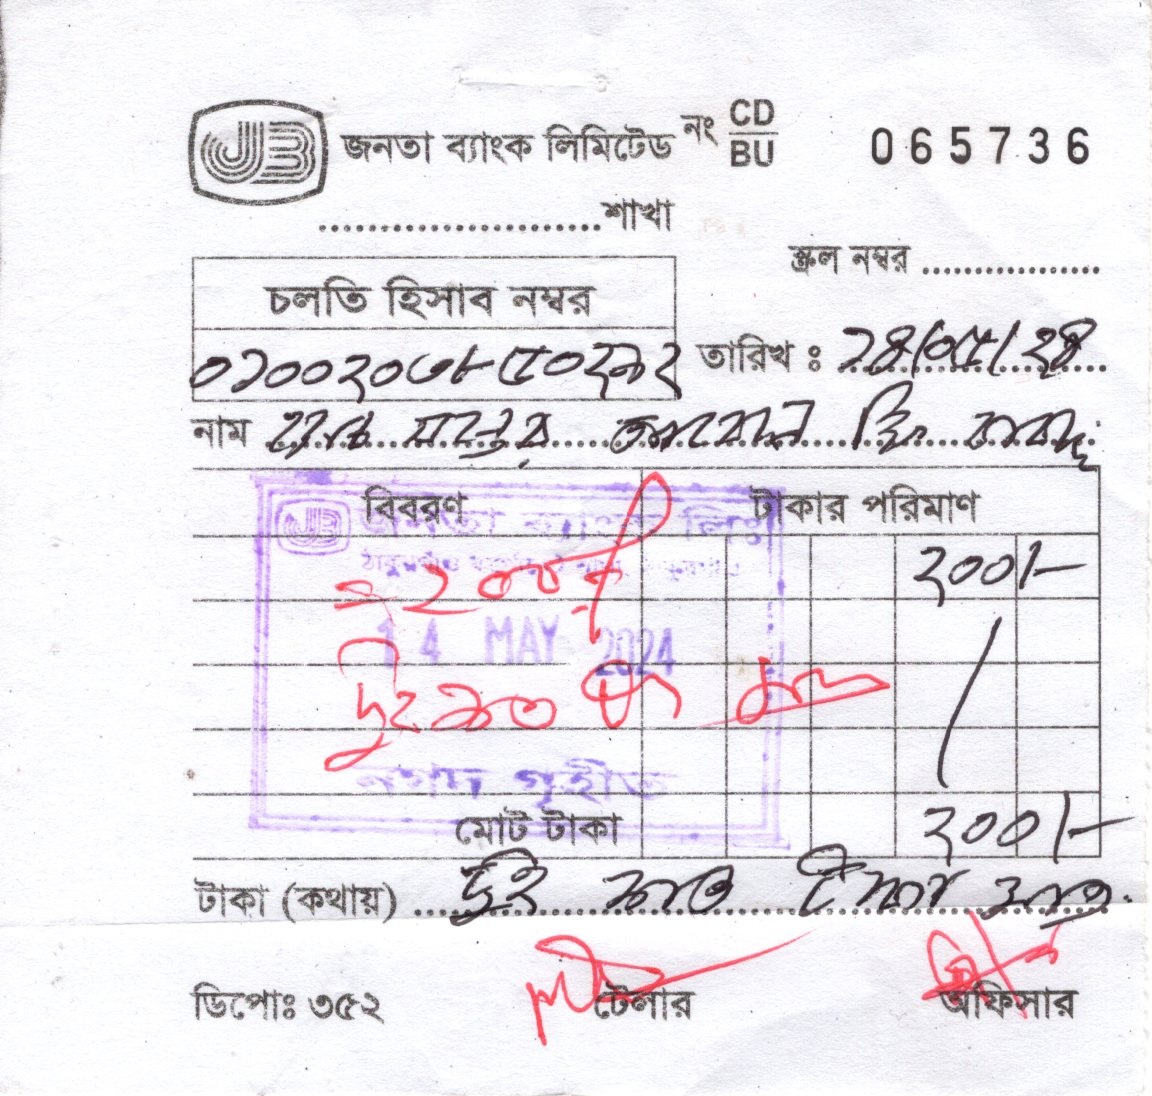 JB জনতা ব্যাংক লিমিটেড নং CD/BU 065736
....................শাখা
স্ক্রল নম্বর ..................
চলতি হিসাব নম্বর
তারিখ ঃ ১৪/০৫/২৪
নাম
বিবরণ টাকার পরিমাণ
জনতা ব্যাংক লিঃ
২০০/-
= ২০০/=
14 MAY 2024
দুই শত টাকা মাত্র
নগদ গৃহীত
মোট টাকা ২০০/-
টাকা (কথায়) দুই শত টাকা মাত্র
ডিপোঃ ৩৫২ টেলার অফিসার